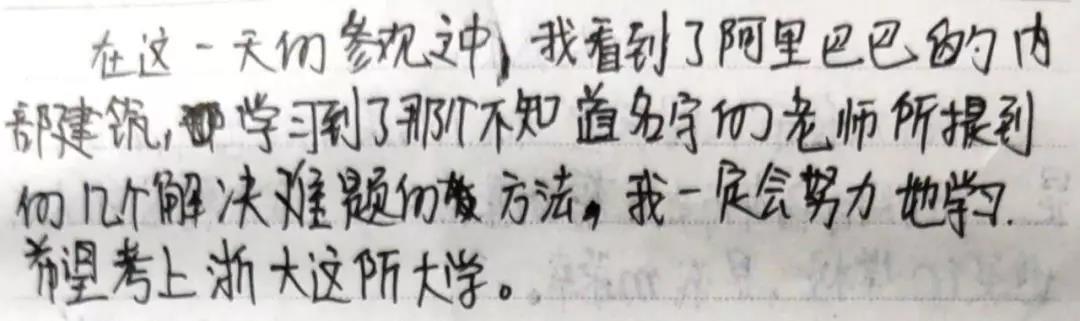 在这一天的参观之中，我看到了阿里巴巴的内
部建筑，学习到了那个不知道名字的老师所提到
的几个解决难题的方法。我一定会努力地学习.
希望考上浙大这所大学。